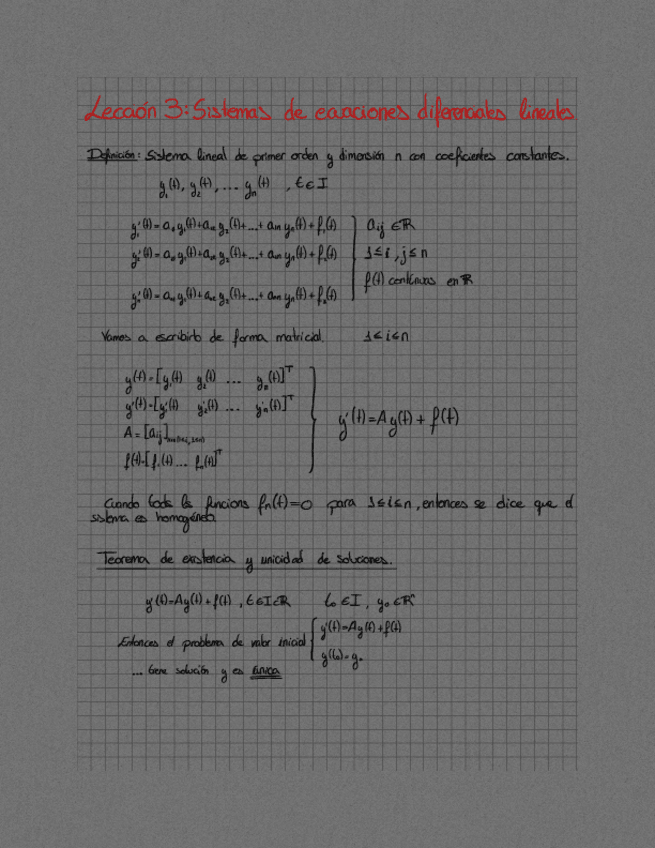 Lección 3: Sistemas de ecuaciones diferenciales lineales
Definición: Sistema lineal de primer orden y dimensión n con coeficientes constantes.
y₁(t), y₂(t), ... yₙ(t) , t ∈ I
y₁'(t) = a₁₁y₁(t)+a₁₂y₂(t)+...+a₁ₙyₙ(t)+f₁(t) aij ∈ ℝ
y₂'(t) = a₂₁y₁(t)+a₂₂y₂(t)+...+a₂ₙyₙ(t)+f₂(t) 1≤i, j≤n
f(t) continuas en ℝ
yₙ'(t) = aₙ₁y₁(t)+aₙ₂y₂(t)+...+aₙₙyₙ(t)+fₙ(t)
Vamos a escribirlo de forma matricial. 1≤i≤n
y(t)=[y₁(t) y₂(t) ... yₙ(t)]ᵀ
y'(t)=[y₁'(t) y₂'(t) ... yₙ'(t)]ᵀ y'(t)=Ay(t)+f(t)
A=[aij]
f(t)=[f₁(t)...fₙ(t)]ᵀ
Cuando todas las funcions fₙ(t)=0 para 1≤i≤n, entonces se dice que el
sistema es homogéneo.
Teorema de existencia y unicidad de soluciones.
y'(t)=Ay(t)+f(t) , t∈I∈ℝ t₀∈I , y₀∈ℝⁿ
Entonces el problema de valor inicial { y'(t)=Ay(t)+f(t)
y(t₀)=y₀
... tiene solución y es única